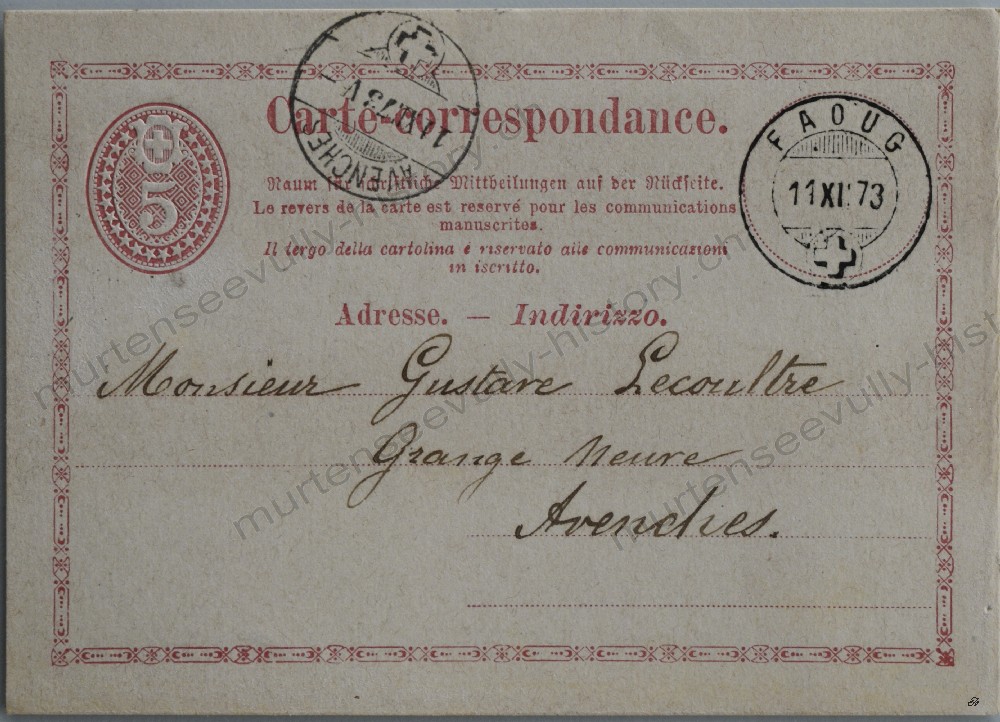 Carte-correspondance.
5
AVENCHES
11
73 V
FAOUG
11 XI 73
Raum für schriftliche Mittheilungen auf der Rückseite.
Le revers de la carte est reservé pour les communications
manuscrites.
Il tergo della cartolina è riservato alle communicazioni
in iscritto.
Adresse. — Indirizzo.
Monsieur Gustave Lecoultre
Grange Neuve
Avenches.
murtenseevully-history.ch
murtenseevully-history.ch
murtenseevully-history